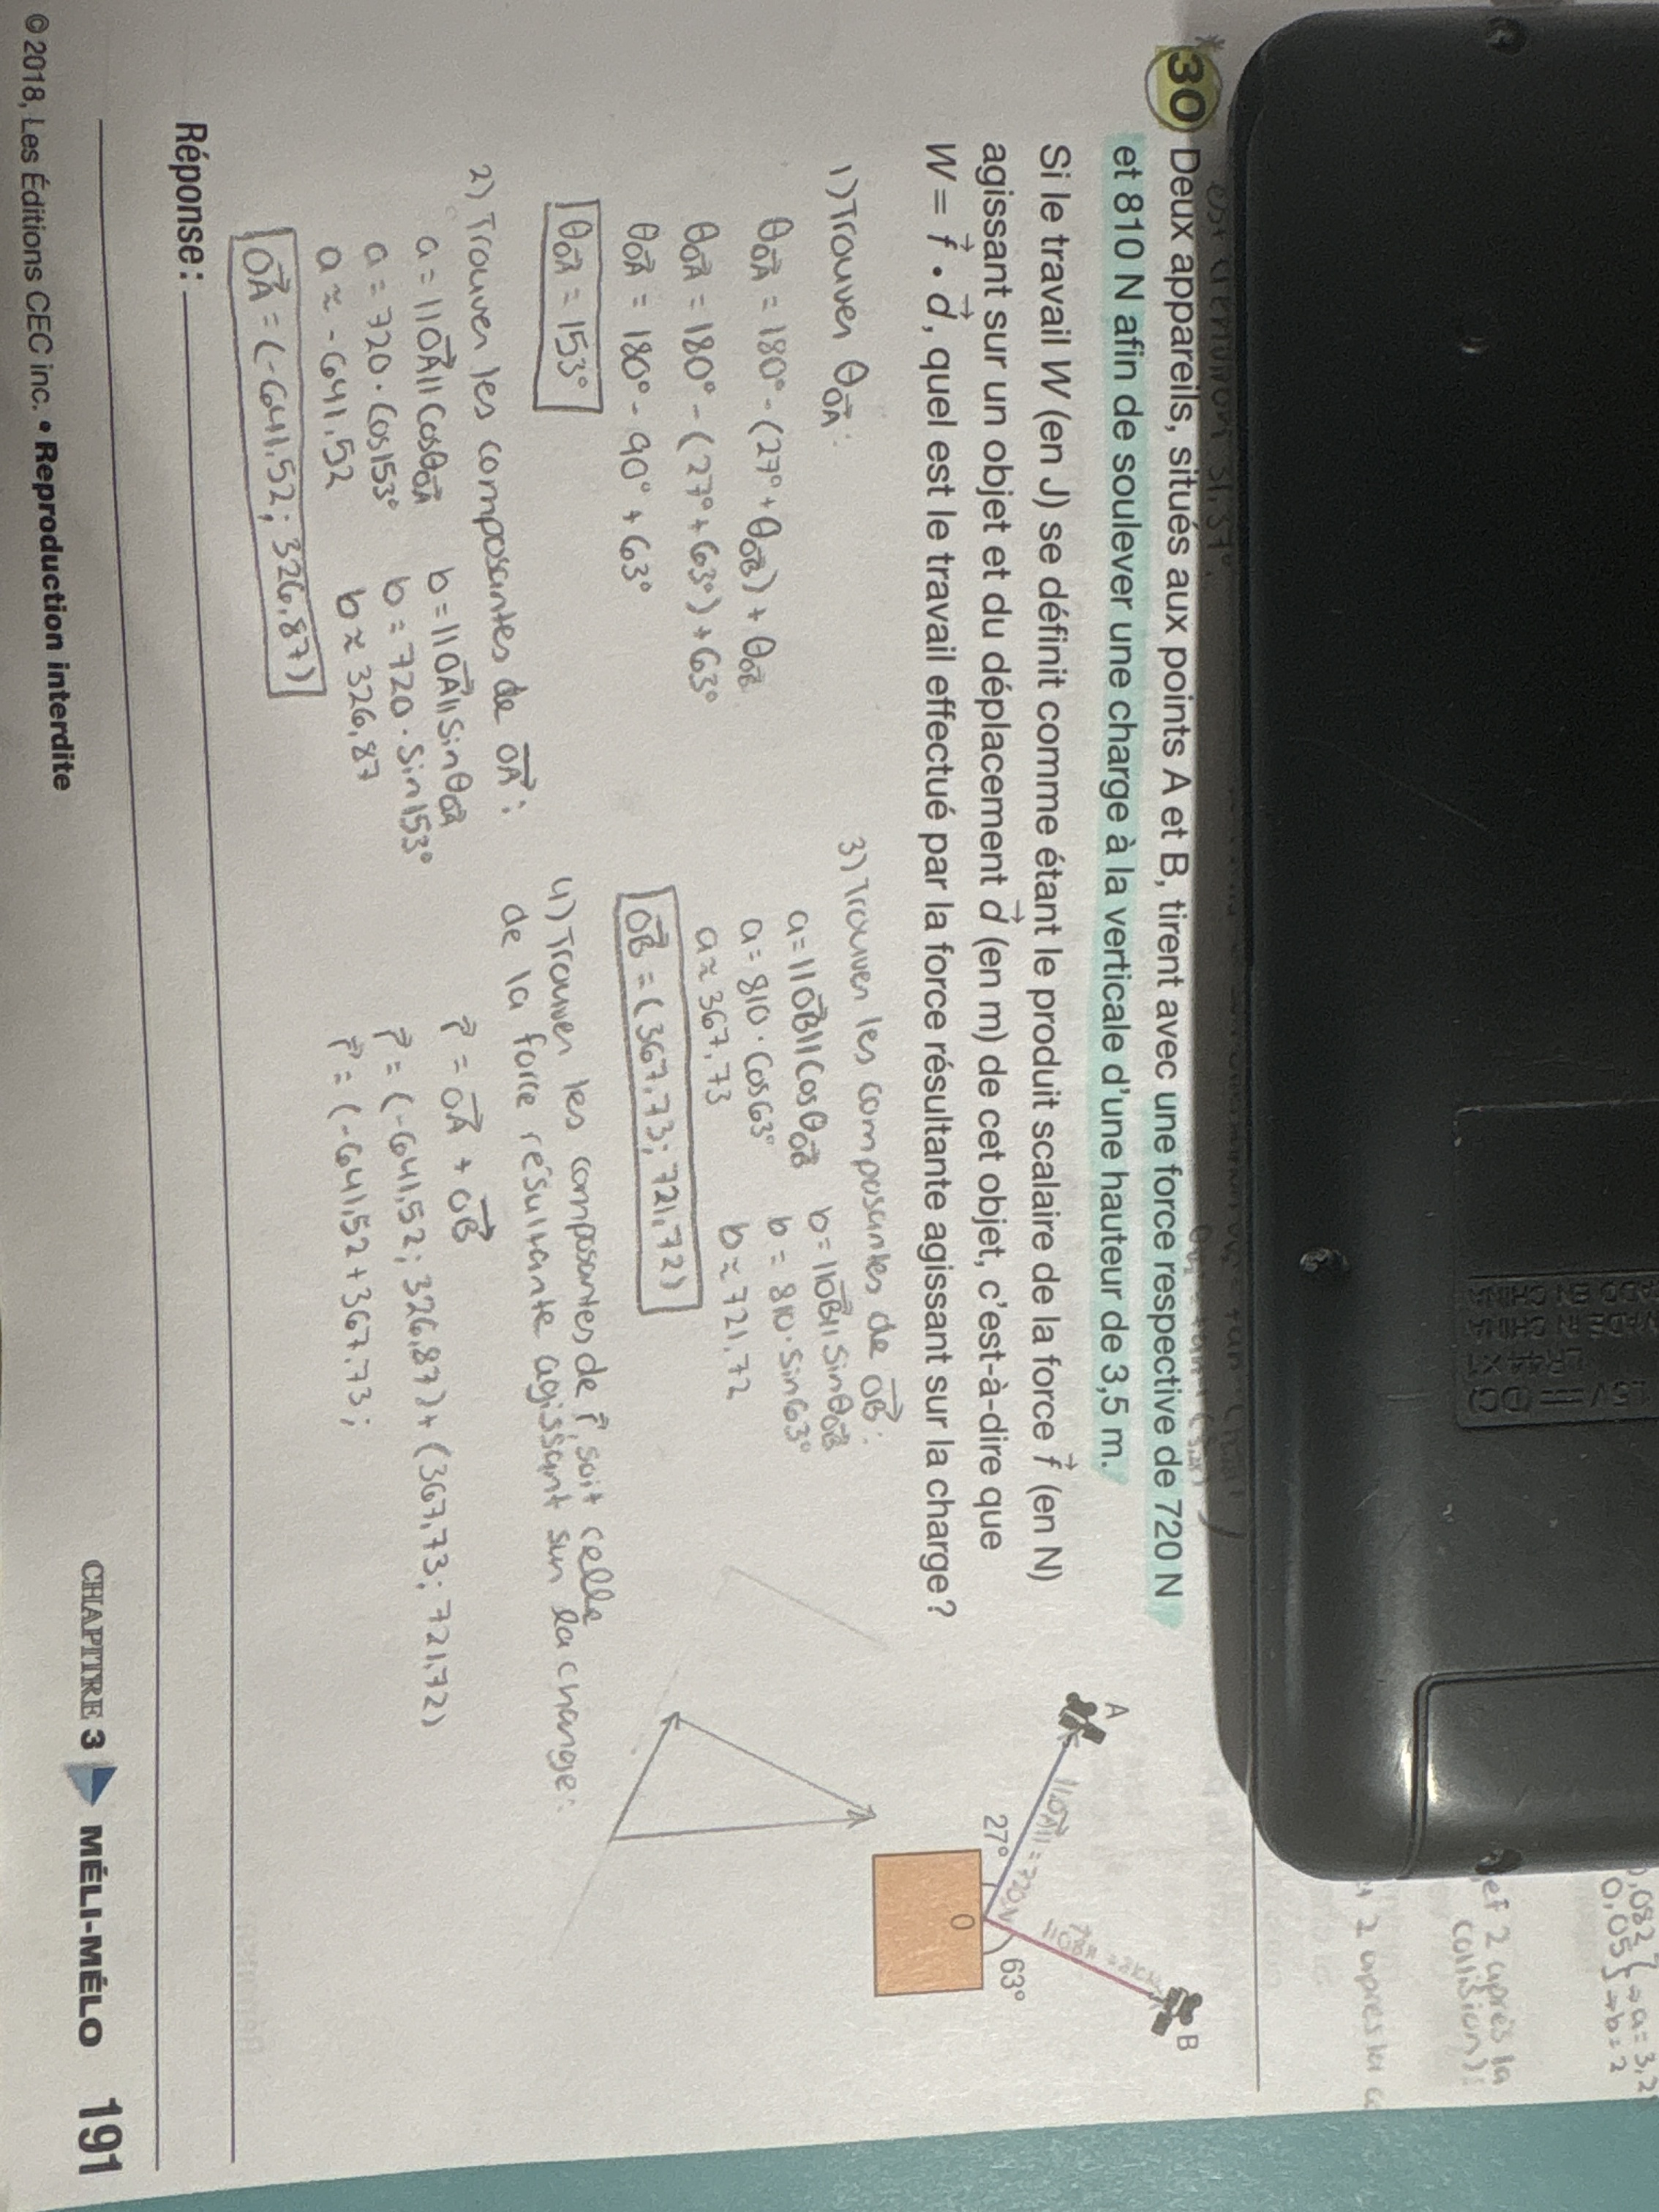 *
30 Deux appareils, situés aux points A et B, tirent avec une force respective de 720 N
et 810 N afin de soulever une charge à la verticale d'une hauteur de 3,5 m.
Si le travail W (en J) se définit comme étant le produit scalaire de la force f⃗ (en N)
agissant sur un objet et du déplacement d⃗ (en m) de cet objet, c'est-à-dire que
W = f⃗ • d⃗, quel est le travail effectué par la force résultante agissant sur la charge?
A
B
||OA⃗|| = 720N
27°
63°
O
1) Trouver θOA⃗ :
θOA⃗ = 180° - (27° + θOB⃗) + θOB⃗
θOA⃗ = 180° - (27° + 63°) + 63°
θOA⃗ = 180° - 90° + 63°
θOA⃗ = 153°
2) Trouver les composantes de OA⃗ :
a = ||OA⃗|| cosθOA⃗ b = ||OA⃗|| sinθOA⃗
a = 720 · cos153° b = 720 · sin153°
a ≈ -641,52 b ≈ 326,87
OA⃗ = (-641,52 ; 326,87)
3) Trouver les composantes de OB⃗ :
a = ||OB⃗|| cosθOB⃗ b = ||OB⃗|| sinθOB⃗
a = 810 · cos63° b = 810 · sin63°
a ≈ 367,73 b ≈ 721,72
OB⃗ = (367,73 ; 721,72)
4) Trouver les composantes de r⃗, soit celle
de la force résultante agissant sur la charge :
r⃗ = OA⃗ + OB⃗
r⃗ = (-641,52 ; 326,87) + (367,73 ; 721,72)
r⃗ = (-641,52 + 367,73 ;
Réponse :
© 2018, Les Éditions CEC inc. • Reproduction interdite
CHAPITRE 3 MÉLI-MÉLO 191
1,5V (DC)
LR44 X1
MADE IN CHINA
2 après la
collision) :
0,05} → b = 2